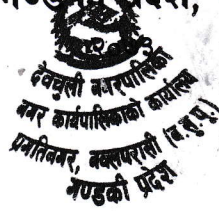 प्रदेश,
देवचुली नगरपालिका
नगर कार्यपालिकाको कार्यालय
प्रगतिनगर, नवलपरासी (ब.सु.पू.)
गण्डकी प्रदेश